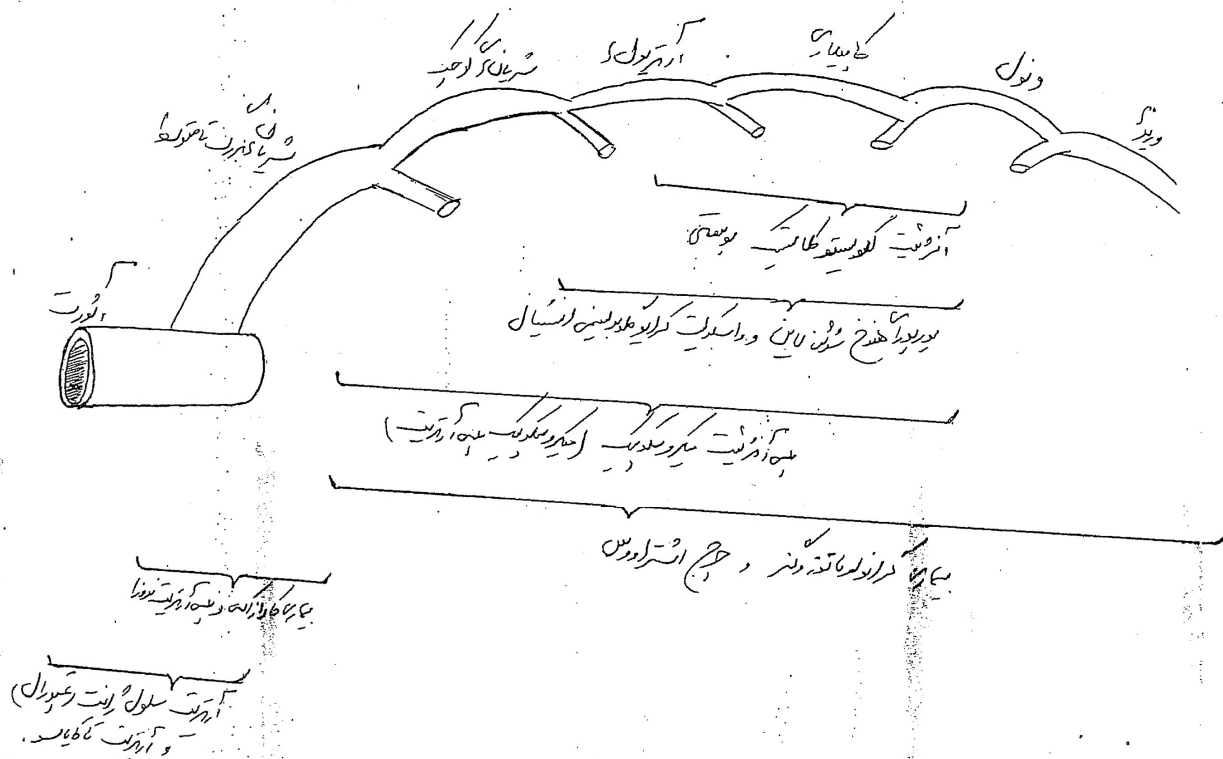 آئورت
شریان‌های بزرگ تا متوسط
شریان‌های کوچک
آرتریول‌ها
کاپیلاری
ونول
وریدها
آنژئیت لکوسیتوکلاستیک پوستی
پورپورای هنوخ شوئن لاین و واسکولیت کرایوگلوبولینمی اسنشیال
پلی آنژئیت میکروسکوپیک (میکروسکوپیک پلی آرتریت)
بیماری گرانولوماتوز وگنر و چرچ اشتراووس
بیماری کاوازاکی و پلی آرتریت ندوزا
آرتریت سلول ژانت (تمپورال)
و آرتریت تاکایاسو.